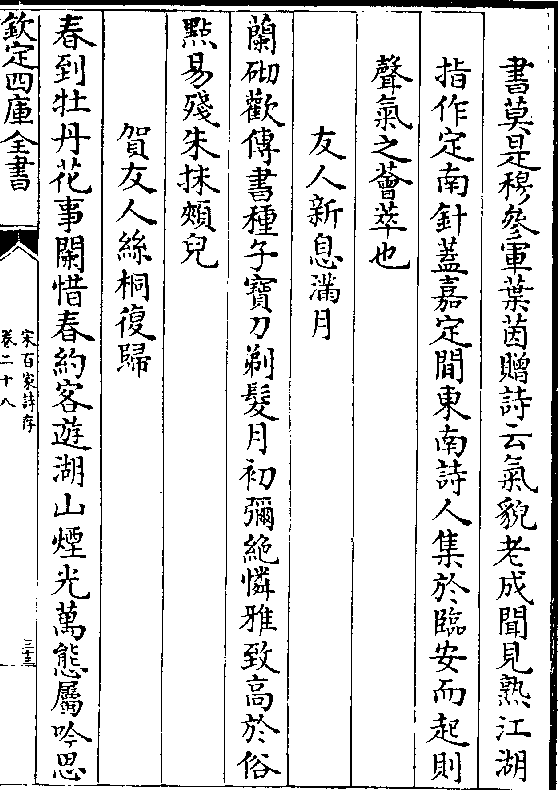 書莫是穆參軍葉茵贈詩云氣貌老成聞見熟江湖
指作定南針蓋嘉定間東南詩人集於臨安而起則
聲氣之薈萃也
友人新息滿月
蘭砌歡傳書種子寶刀剃髮月初彌絶憐雅致高於俗
㸃易殘朱抹頰兒
賀友人絲桐復歸
春到牡丹花事闌惜春約客遊湖山煙光萬態屬吟思
欽定四庫全書
宋百家詩存
卷二十八
三十三